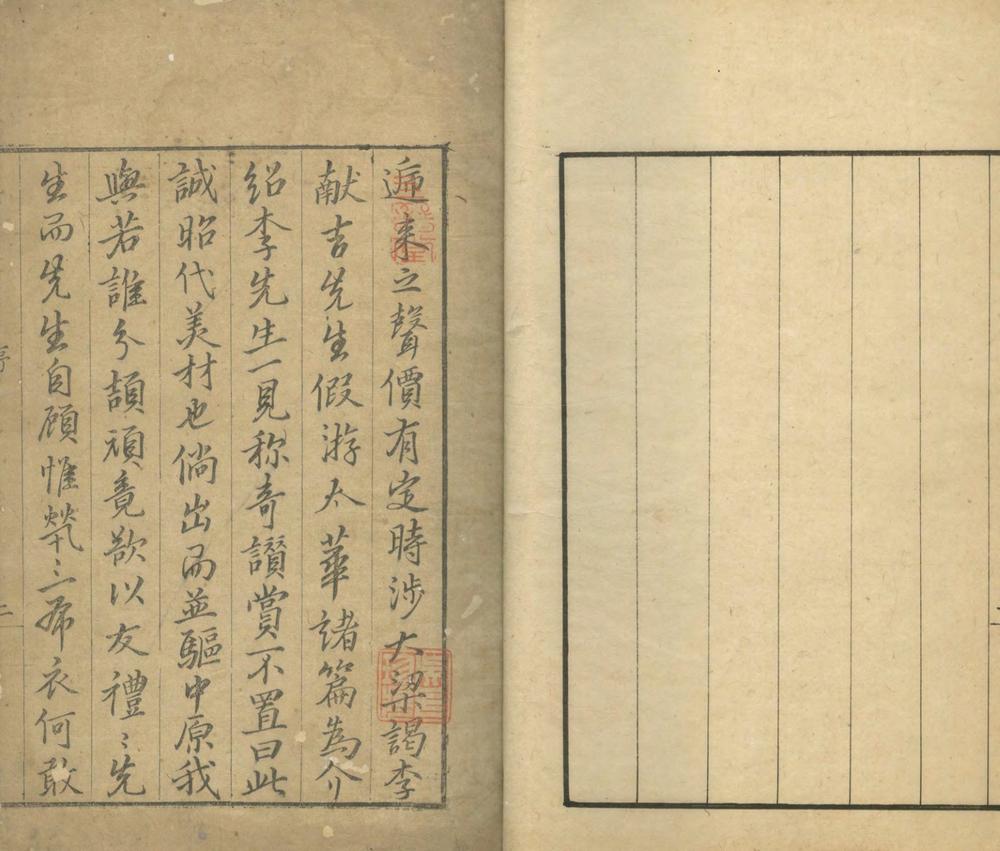 邇来之聲價有定時涉大梁謁李
献吉先生假游太華諸篇為介
紹李先生一見称奇讃賞不置曰此
誠昭代美材也倘出而並驅中原我
與若誰分頡頏竟欲以友禮〻先
生而先生自顧惟煢〻一布衣何敢